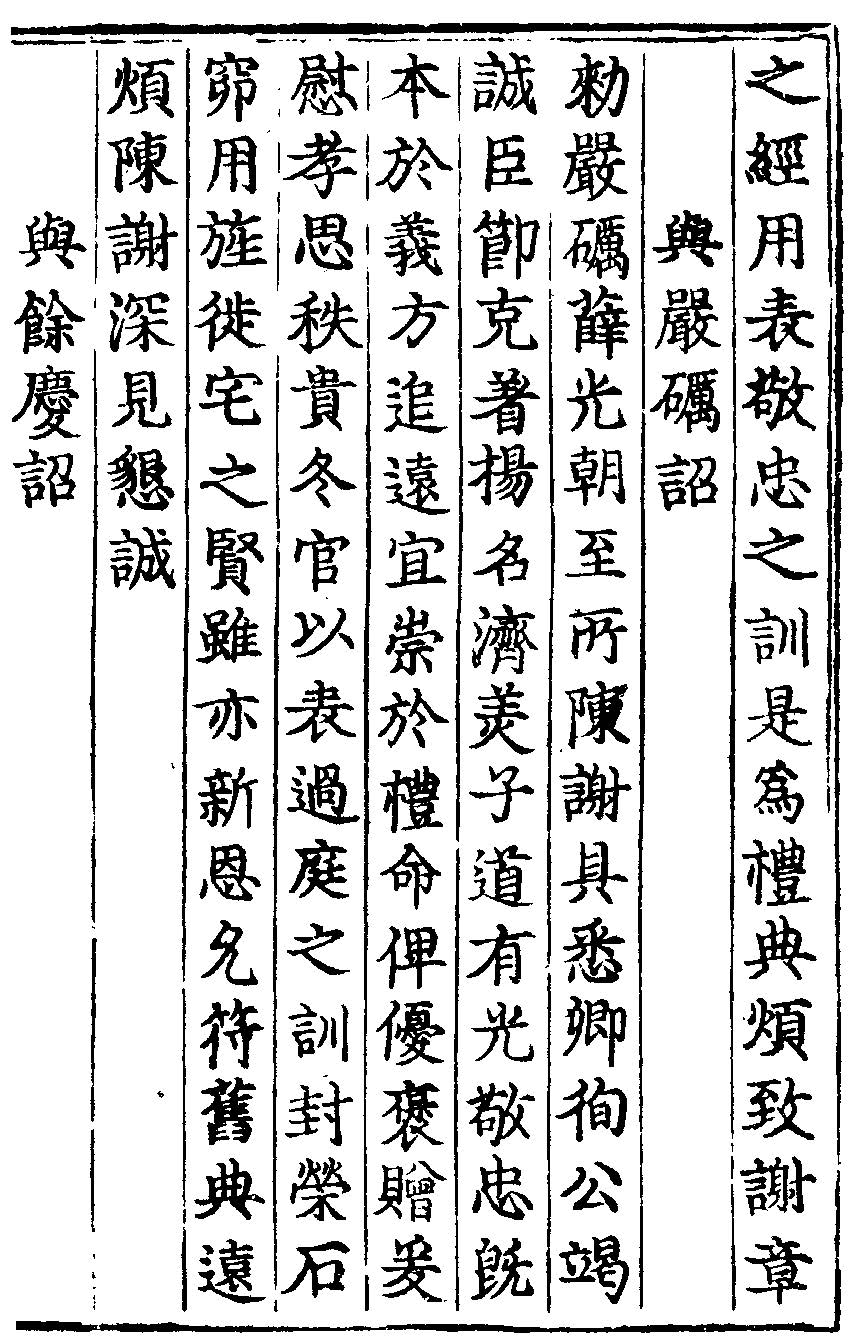 之經用表敬忠之訓是為禮典煩致謝章
與嚴礪詔
勑嚴礪薛光朝至所陳謝具悉卿徇公竭
誠臣節克著揚名濟美子道有光敬忠旣
本於義方追遠宜崇於禮命俾優褒贈爰
慰孝思秩貴冬官以表過庭之訓封榮石
窌用旌徙宅之賢雖亦新恩允符舊典遠
煩陳謝深見懇誠
與餘慶詔